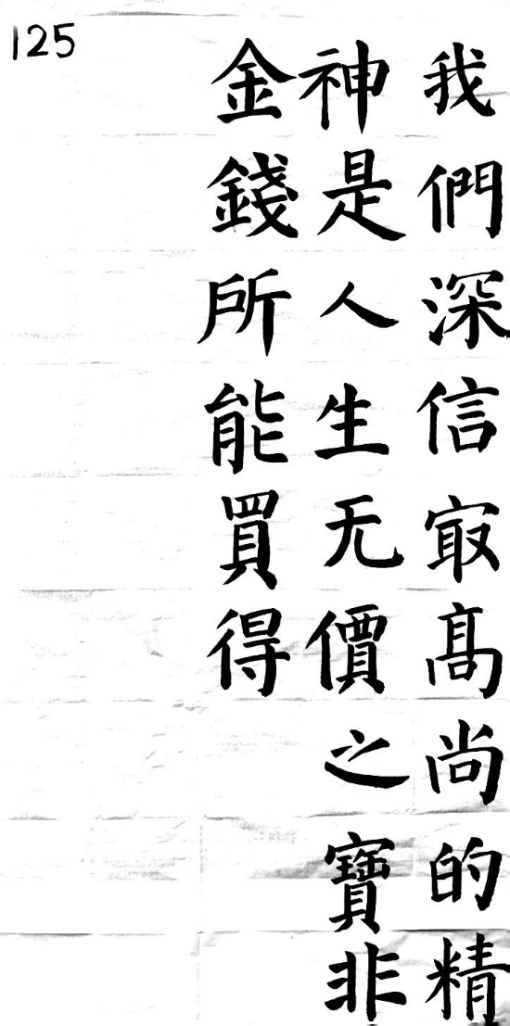 125
我們深信㝡髙尚的精
神是人生无價之寶非
金錢所能買得